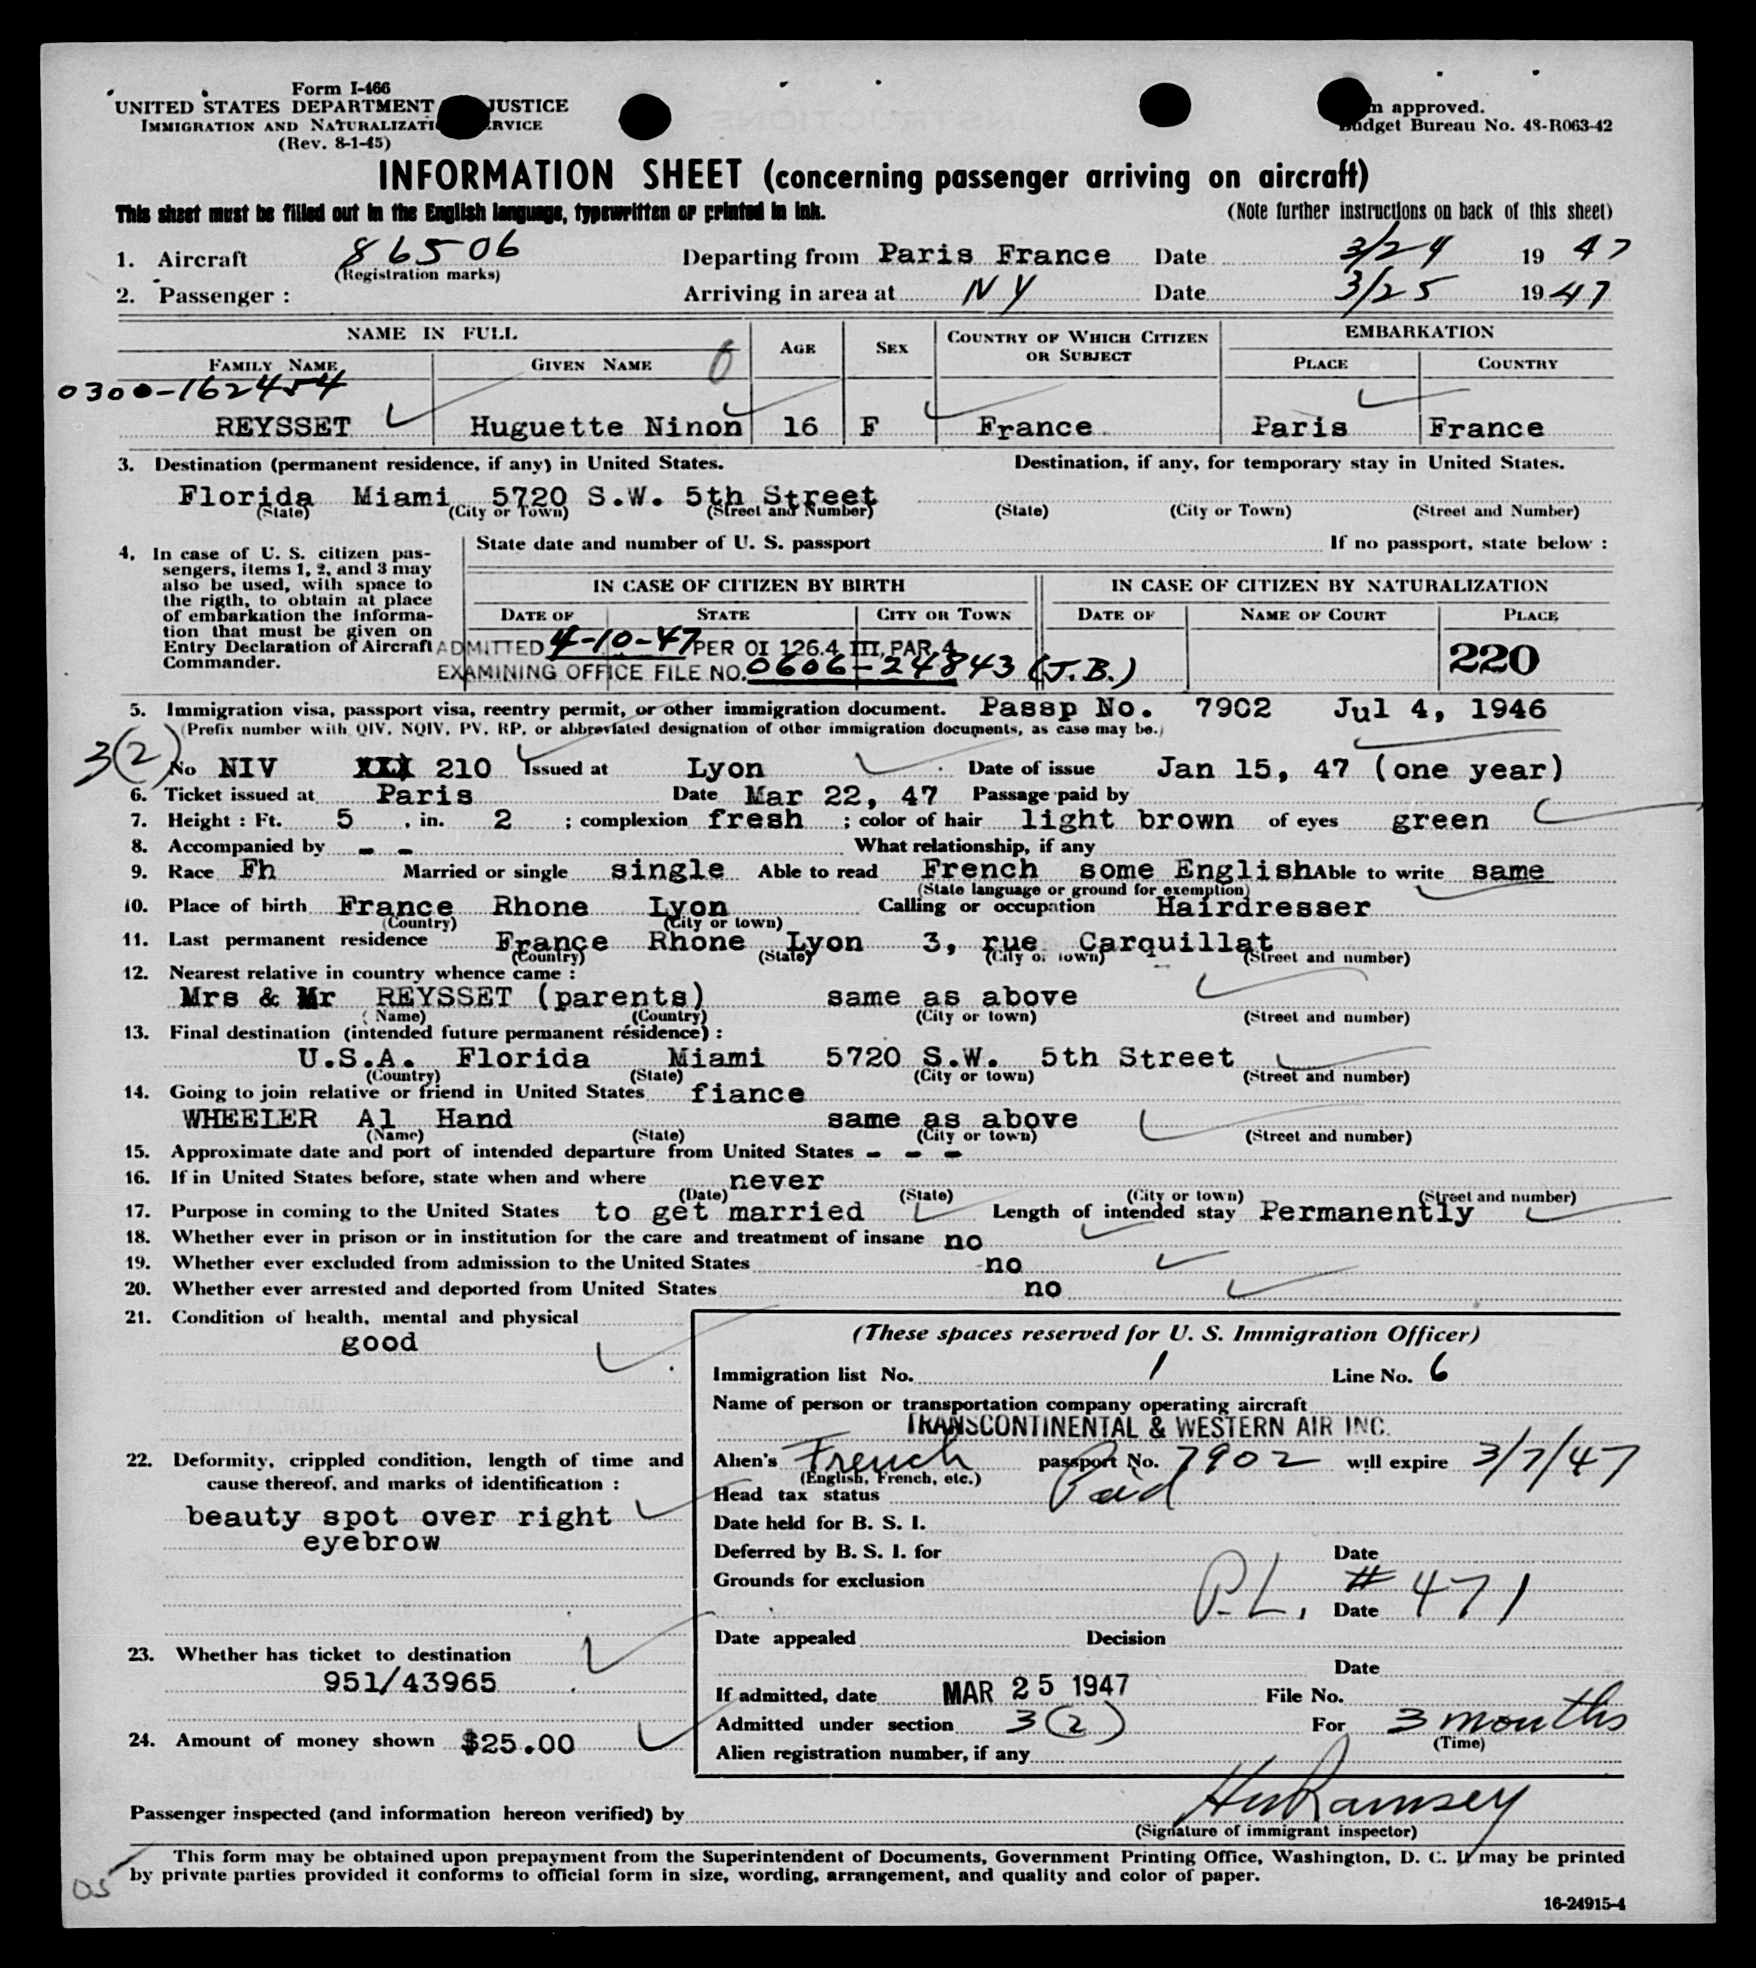 Form I-466
UNITED STATES DEPARTMENT JUSTICE
IMMIGRATION AND NATURALIZATI RVICE
(Rev. 8-1-45)
m approved.
Budget Bureau No. 43-R063-42
INFORMATION SHEET (concerning passenger arriving on aircraft)
This sheet must be filled out in the English language, typewritten or printed in ink.
(Note further instructions on back of this sheet)
1. Aircraft 86506 Departing from Paris France Date 3/24 1947
(Registration marks)
2. Passenger : Arriving in area at NY Date 3/25 1947
NAME IN FULL AGE SEX COUNTRY OF WHICH CITIZEN OR SUBJECT EMBARKATION
FAMILY NAME GIVEN NAME PLACE COUNTRY
0300-162454
REYSSET Huguette Ninon 16 F France Paris France
3. Destination (permanent residence, if any) in United States. Destination, if any, for temporary stay in United States.
Florida Miami 5720 S.W. 5th Street
(State) (City or Town) (Street and Number) (State) (City or Town) (Street and Number)
4. In case of U. S. citizen passengers, items 1, 2, and 3 may also be used, with space to the rigth, to obtain at place of embarkation the information that must be given on Entry Declaration of Aircraft Commander.
State date and number of U. S. passport If no passport, state below :
IN CASE OF CITIZEN BY BIRTH IN CASE OF CITIZEN BY NATURALIZATION
DATE OF STATE CITY OR TOWN DATE OF NAME OF COURT PLACE
ADMITTED 4-10-47 PER OI 126.4 III, PAR 4
EXAMINING OFFICE FILE NO. 0606-24843 (J.B.)
220
5. Immigration visa, passport visa, reentry permit, or other immigration document. Passp No. 7902 Jul 4, 1946
(Prefix number with QIV, NQIV, PV, RP, or abbreviated designation of other immigration documents, as case may be.)
3(2)
No NIV 210 Issued at Lyon Date of issue Jan 15, 47 (one year)
6. Ticket issued at Paris Date Mar 22, 47 Passage paid by
7. Height : Ft. 5 , in. 2 ; complexion fresh ; color of hair light brown of eyes green
8. Accompanied by - - What relationship, if any
9. Race Fh Married or single single Able to read French some English Able to write same
(State language or ground for exemption)
10. Place of birth France Rhone Lyon Calling or occupation Hairdresser
(Country) (City or town)
11. Last permanent residence France Rhone Lyon 3, rue Carquillat
(Country) (State) (City or town) (Street and number)
12. Nearest relative in country whence came :
Mrs & Mr REYSSET (parents) same as above
(Name) (Country) (City or town) (Street and number)
13. Final destination (intended future permanent résidence) :
U.S.A. Florida Miami 5720 S.W. 5th Street
(Country) (State) (City or town) (Street and number)
14. Going to join relative or friend in United States fiance
WHEELER Al Hand same as above
(Name) (State) (City or town) (Street and number)
15. Approximate date and port of intended departure from United States - - -
16. If in United States before, state when and where never
(Date) (State) (City or town) (Street and number)
17. Purpose in coming to the United States to get married Length of intended stay Permanently
18. Whether ever in prison or in institution for the care and treatment of insane no
19. Whether ever excluded from admission to the United States no
20. Whether ever arrested and deported from United States no
21. Condition of health, mental and physical
good
22. Deformity, crippled condition, length of time and cause thereof, and marks of identification :
beauty spot over right
eyebrow
23. Whether has ticket to destination
951/43965
24. Amount of money shown $25.00
(These spaces reserved for U. S. Immigration Officer)
Immigration list No. 1 Line No. 6
Name of person or transportation company operating aircraft
TRANSCONTINENTAL & WESTERN AIR INC.
Alien's French passport No. 7902 will expire 3/7/47
(English, French, etc.)
Head tax status Paid
Date held for B. S. I.
Deferred by B. S. I. for Date
Grounds for exclusion P.L. # 471
Date
Date appealed Decision
Date
If admitted, date MAR 25 1947 File No.
Admitted under section 3(2) For 3 months
(Time)
Alien registration number, if any
Passenger inspected (and information hereon verified) by Ramsey
(Signature of immigrant inspector)
This form may be obtained upon prepayment from the Superintendent of Documents, Government Printing Office, Washington, D. C. It may be printed
by private parties provided it conforms to official form in size, wording, arrangement, and quality and color of paper.
16-24915-4